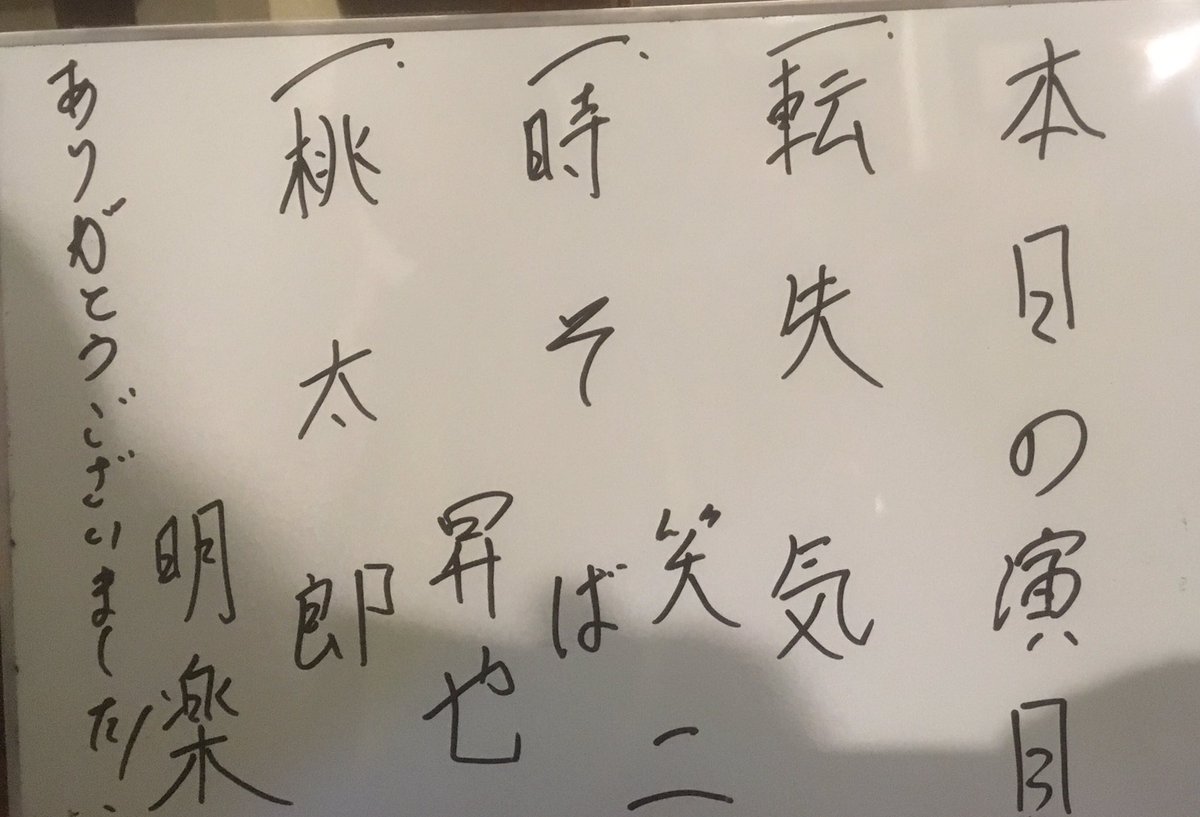 本日の演目
一、転失気
笑二
一、時そば
昇也
一、桃太郎
明楽
ありがとうございました!